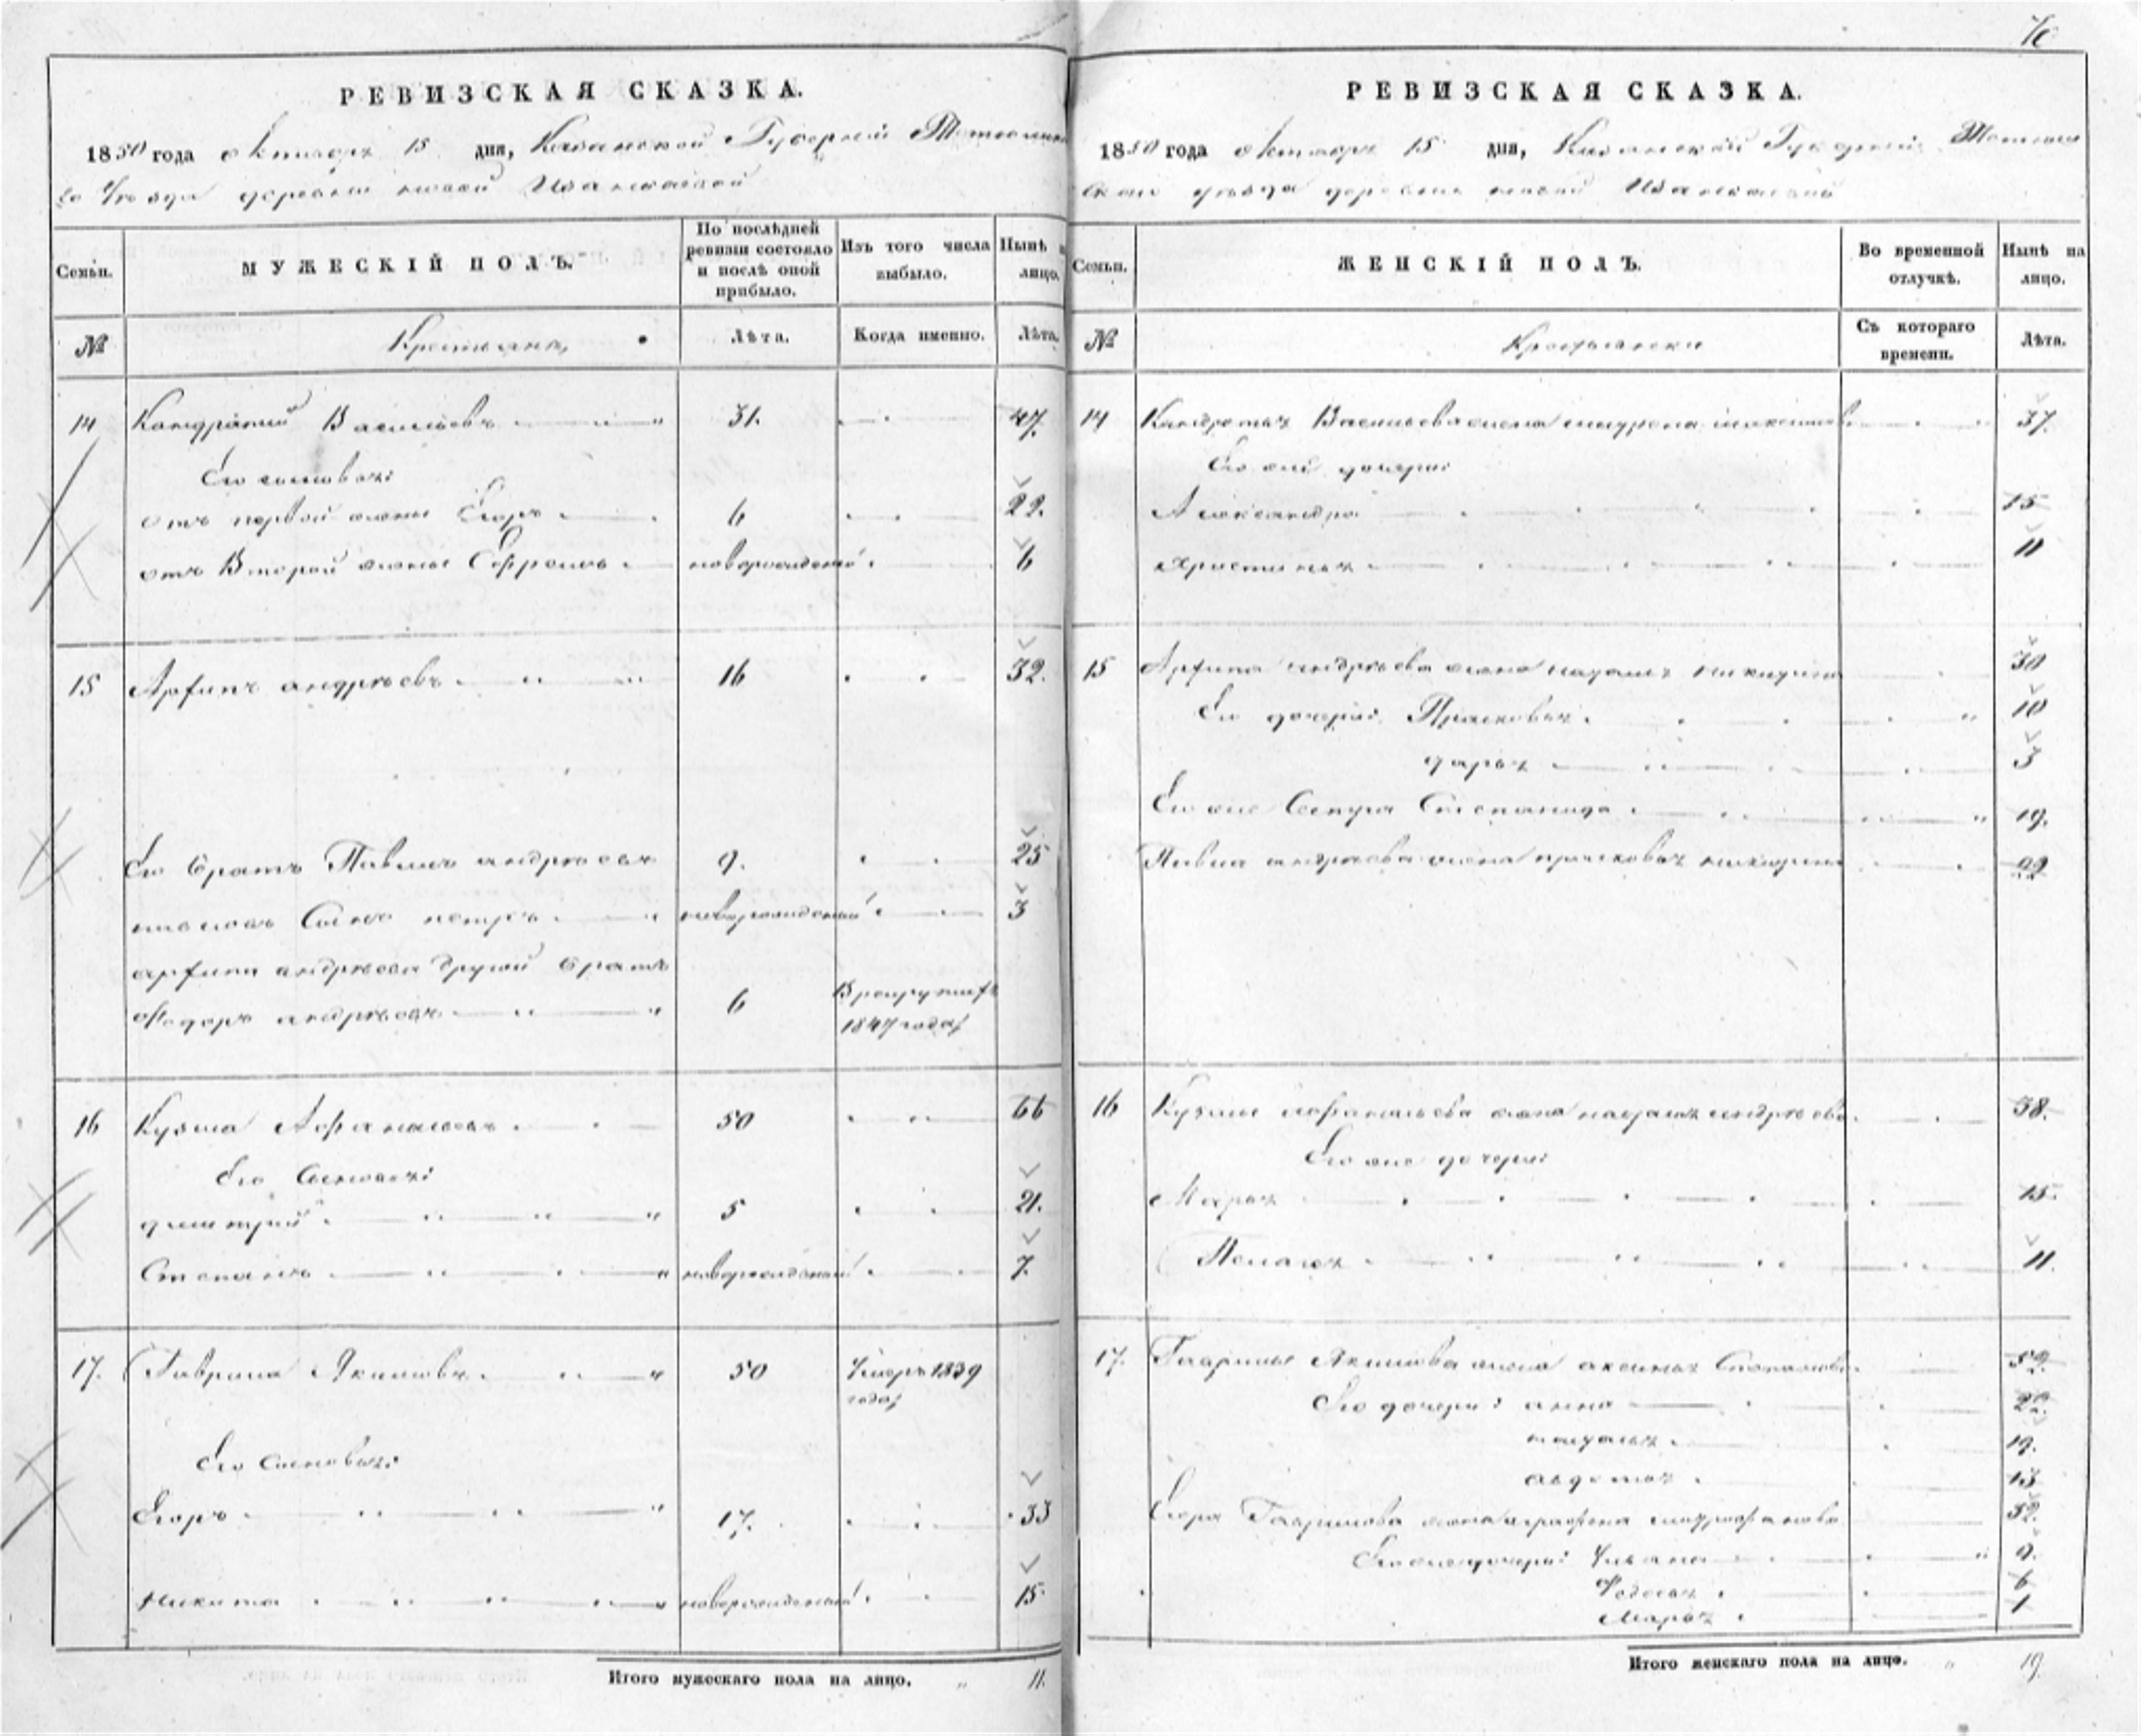 РЕВИЗСКАЯ СКАЗКА.
1850 года октября 15 дня, Казанской Губерніи
уезда деревни новой
Семьи.
МУЖЕСКІЙ ПОЛЪ.
По послѣдней ревизіи состояло и послѣ оной прибыло.
Изъ того числа выбыло.
Нынѣ на лицо.
№
Крестьяне,
Лѣта.
Когда именно.
Лѣта.
14 Кондратий Васильевъ 31. 47.
Его сыновья:
отъ первой жены Егоръ 6 22.
отъ Второй жены Ефремъ новорожденный 6
15 Архипъ андрѣевъ 16 32.
Его братъ Павилъ андрѣевъ 9. 25
павловъ Сынъ петръ новорожденный 3
архипа андрѣева другой братъ
Федоръ андрѣевъ 6 В рекруты
1847 года
16 Кузма Афанасьевъ 50 66
Его Сыновья:
дмитрий 5 21.
Степанъ новорожденный 7.
17. Гаврила Якимовъ 50 Умеръ 1839
года
Его Сыновья:
Егоръ 17. 33
Никита новорожденный 15
Итого мужескаго пола на лицо. 11.
76
РЕВИЗСКАЯ СКАЗКА.
1850 года октября 15 дня, Казанской Губерніи
уѣзда деревни новой
Семьи.
ЖЕНСКІЙ ПОЛЪ.
Во временной отлучкѣ.
Нынѣ на лицо.
№
Крестьянки
Съ котораго времени.
Лѣта.
14 Кондратья Васильева жена 37.
Его же дочери:
Александра 15
Христинья 11
15 Архипа андрѣева жена наталья никитина 30
Его дочери: Прасковья 10
дарья 3
Его же Сестра Степанида 19.
Павила андрѣева жена прасковья никитина 22
16 Кузмы Афанасьева жена наталья андрѣева 38.
Его же дочери:
Марья 15.
Пелагея 11.
17. Гаврилы Якимова жена аксинья Степанова 52.
Его дочери: анна 22.
наталья 19.
авдотья 13
Егора Гаврилова жена аграфена митрофанова 32.
Его же дочери: Ульяна 9.
Федосья 6
Марья 1
Итого женскаго пола на лицо. 19.